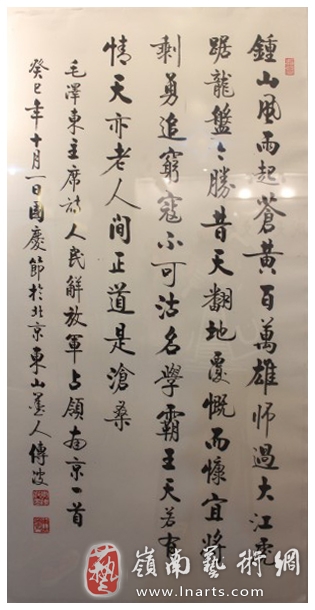 鍾山風雨起蒼黄百萬雄師過大江虎
踞龍盤今勝昔天翻地覆慨而慷宜將
剩勇追窮寇不可沽名學霸王天若有
情天亦老人間正道是滄桑
毛澤東主席詩人民解放軍占領南京一首
癸巳年十月一日國慶節於北京東山墨人傅波
藝
嶺南藝術網
www.lnarts.com